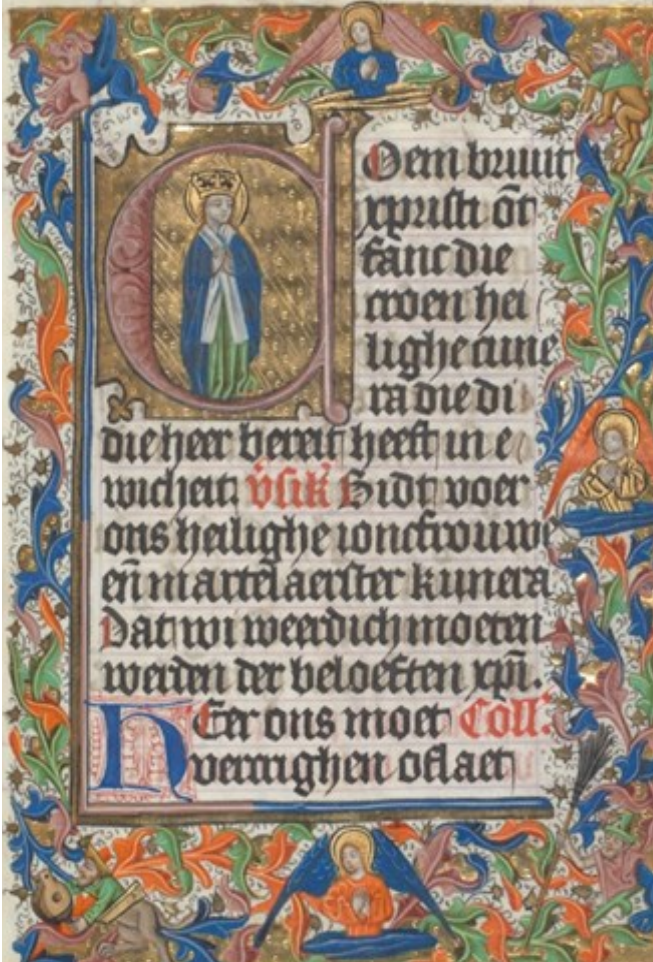 COem bruut
xpristi ōt
fanc die
croen hei
lighe cune
ra die di
die heer bereit heeft in e
wicheit. v̓sik̓ Bidt voer
ons heilighe ioncfrouwe
en̄ martelaerster kunera
Dat wi weerdich moeten
werden der beloeften xp̄i.
HEer ons moet Coll̓.
vercrighen oflaet